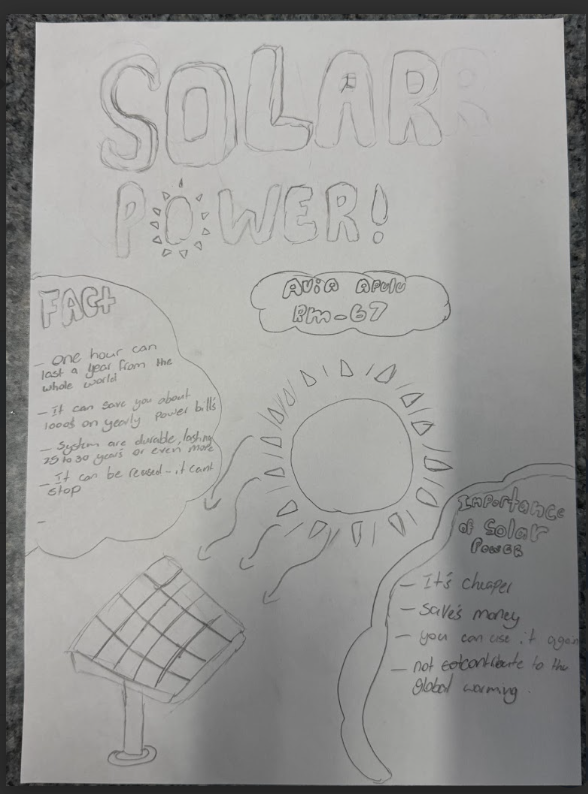 SOLAR
POWER!
Avin Apulu
Rm-67
FACt
- One hour can
last a year from the
whole world
- It can save you about
1000$ on yearly power bills
- System are durable, lasting
25 to 30 years or even more
- It can be reused - it cant
stop
-
Importance
of Solar
Power
- It's cheaper
- Save's money
- you can use it again
- not contribute to the
global warming.